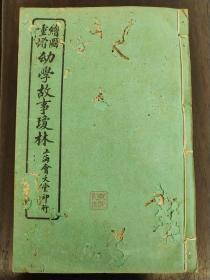 繪圖
重增
幼學故事瓊林
上海會文堂印行